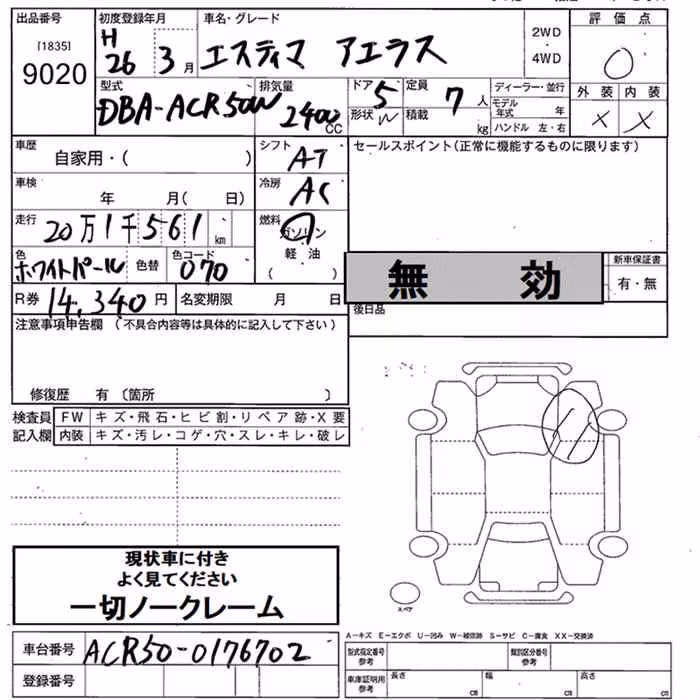 出品番号
[1835]
9020
初度登録年月
H
26 3月
車名・グレード
エスティマ アエラス
2WD
・
4WD
評価点
0
外装 内装
× ×
型式
DBA-ACR50W
排気量
2400
CC
ドア
5
形状 W
定員
7人
積載
kg
ディーラー・並行
モデル年式 年
ハンドル 左・右
車歴
自家用・( )
シフト
AT
セールスポイント(正常に機能するものに限ります)
車検
年 月( 日)
冷房
AC
走行
20万1千561km
燃料
ガソリン
軽油
( )
色
ホワイトパール
色替
色コード
070
無効
新車保証書
有・無
R券 14,340円
名変期限 月 日
後日品
注意事項申告欄(不具合内容等は具体的に記入して下さい)
修復歴 有〔箇所 〕
検査員
記入欄
FW キズ・飛石・ヒビ割・リペア跡・X要
内装 キズ・汚レ・コゲ・穴・スレ・キレ・破レ
現状車に付き
よく見てください
一切ノークレーム
スペア
A-キズ E-エクボ U-凹み W-補修跡 S-サビ C-腐食 XX-交換済
車台番号 ACR50-0176702
登録番号
型式指定番号
参考
類別区分番号
参考
車庫証明用
参考
長さ cm
幅 cm
高さ cm